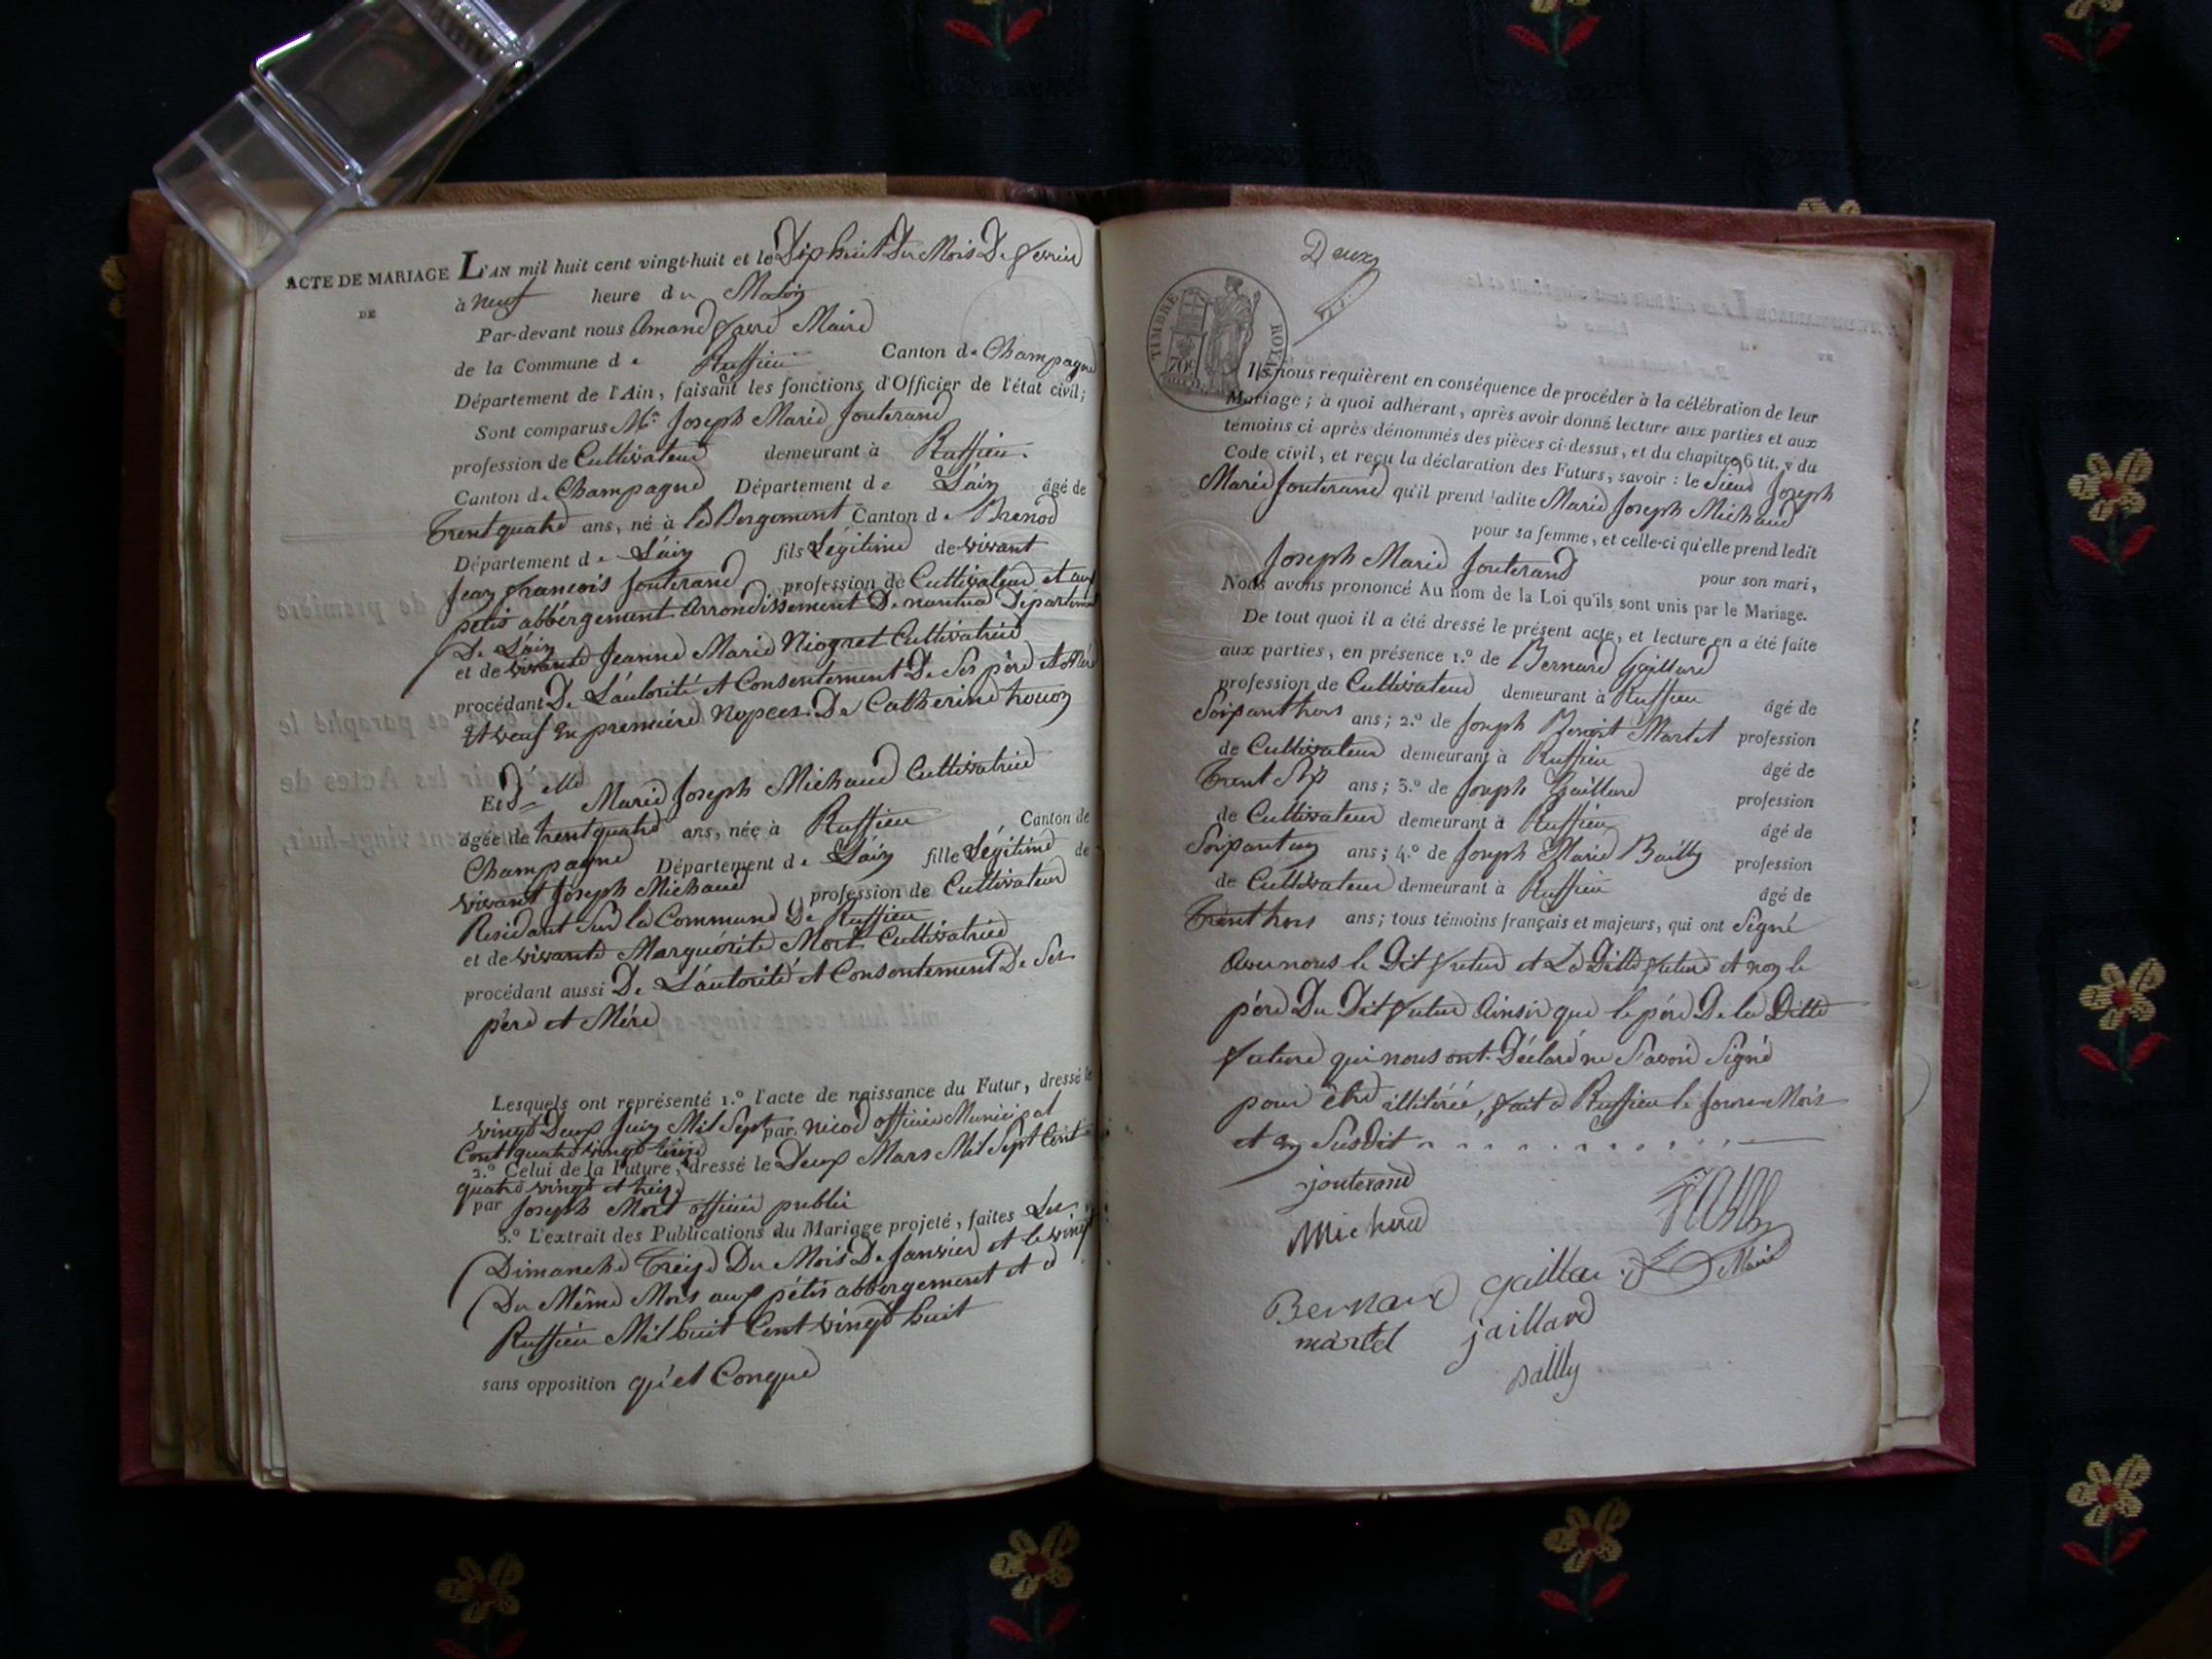 ACTE DE MARIAGE L'AN mil huit cent vingt-huit et le Dix huit Du Mois De fevrier
DE
à neuf heure du Matin
Par-devant nous Amand favre Maire
de la Commune de Ruffieu Canton de Champagne
Département de l'Ain, faisant les fonctions d'Officier de l'état civil;
Sont comparus Mr. Joseph Marie Jouterand
profession de Cultivateur demeurant à Ruffieu.
Canton de Champagne Département de L'ain âgé de
Trent quatre ans, né à le Bergement Canton de Brenod
Département de L'ain fils Légitime de vivant
Jean francois Jouterand profession de Cultivateur et aux
petis abbérgement Arrondissement De nantua Département
De L'ain
et de vivante Jeanne Marie Niogret Cultivatrice
procédant De L'autorité et Consentement De Ses père et Mére
Et veuf en premiére Nopces De Catherine
Et Delle Marie Joseph Michaud Cultivatrice
âgée de trent quatre ans, née à Ruffieu Canton de
Champagne Département de L'ain fille Légitime de
vivant Joseph Michaud profession de Cultivateur
Residant Sur la Commune De Ruffieu
et de vivante Marguérite Mort Cultivatrice
procédant aussi De L'autorité et Consentement De Ses
pére et Mére
Lesquels ont représenté 1.º l'acte de naissance du Futur, dressé le
vingt Deux Juin Mil Sept par nicod officier Municipal
Cent quatre vingt treize
2.º Celui de la Future, dressé le Deux Mars Mil Sept Cent
quatre vingt et treize
par Joseph Mort officier public
3.º L'extrait des Publications du Mariage projeté, faites Les
Dimanche Treize Du Mois De Janvier et le vingt
Du Même Mois aux pétis abbergement et a
Ruffieu Mil huit Cent vingt huit
sans opposition qu'el Conque
Deux
TIMBRE ROYAL
70c
Ils nous requièrent en conséquence de procéder à la célébration de leur
Mariage; à quoi adhérant, après avoir donné lecture aux parties et aux
témoins ci-après dénommés des pièces ci-dessus, et du chapitre 6 tit. v du
Code civil, et reçu la déclaration des Futurs, savoir: le Sieur Joseph
Marie Jouterand qu'il prend ladite Marie Joseph Michaud
pour sa femme, et celle-ci qu'elle prend ledit
Joseph Marie Jouterand pour son mari,
Nous avons prononcé Au nom de la Loi qu'ils sont unis par le Mariage.
De tout quoi il a été dressé le présent acte, et lecture en a été faite
aux parties, en présence 1.º de Bernard Gaillard
profession de Cultivateur demeurant à Ruffieu âgé de
Soixant trois ans; 2.º de Joseph Benoit Martel profession
de Cultivateur demeurant à Ruffieu âgé de
Trent Six ans; 3.º de Joseph Jaillard profession
de Cultivateur demeurant à Ruffieu âgé de
Soixant un ans; 4.º de Joseph Marie Bailly profession
de Cultivateur demeurant à Ruffieu âgé de
Trent trois ans; tous témoins français et majeurs, qui ont Signé
Avec nous le Dit futur et La Ditte future et non le
pére Du Dit futur Ainsi que le pére De la Ditte
future qui nous ont Déclaré ne Savoir Signé
pour etre illitérée, fait a Ruffieu le Jour Mois
et an Susdit
jouterand
Michaud
Bernard gaillar Maire
martel jaillard
bailly